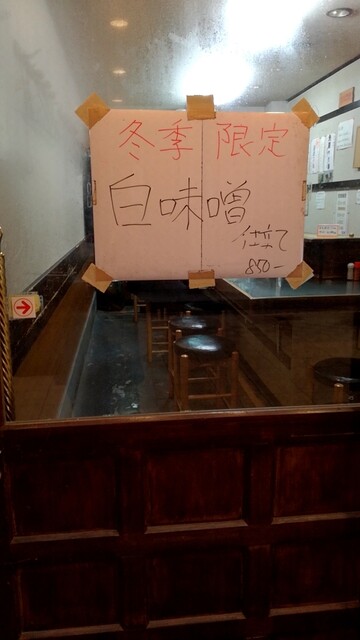 冬季限定
白味噌
仕立て
850-